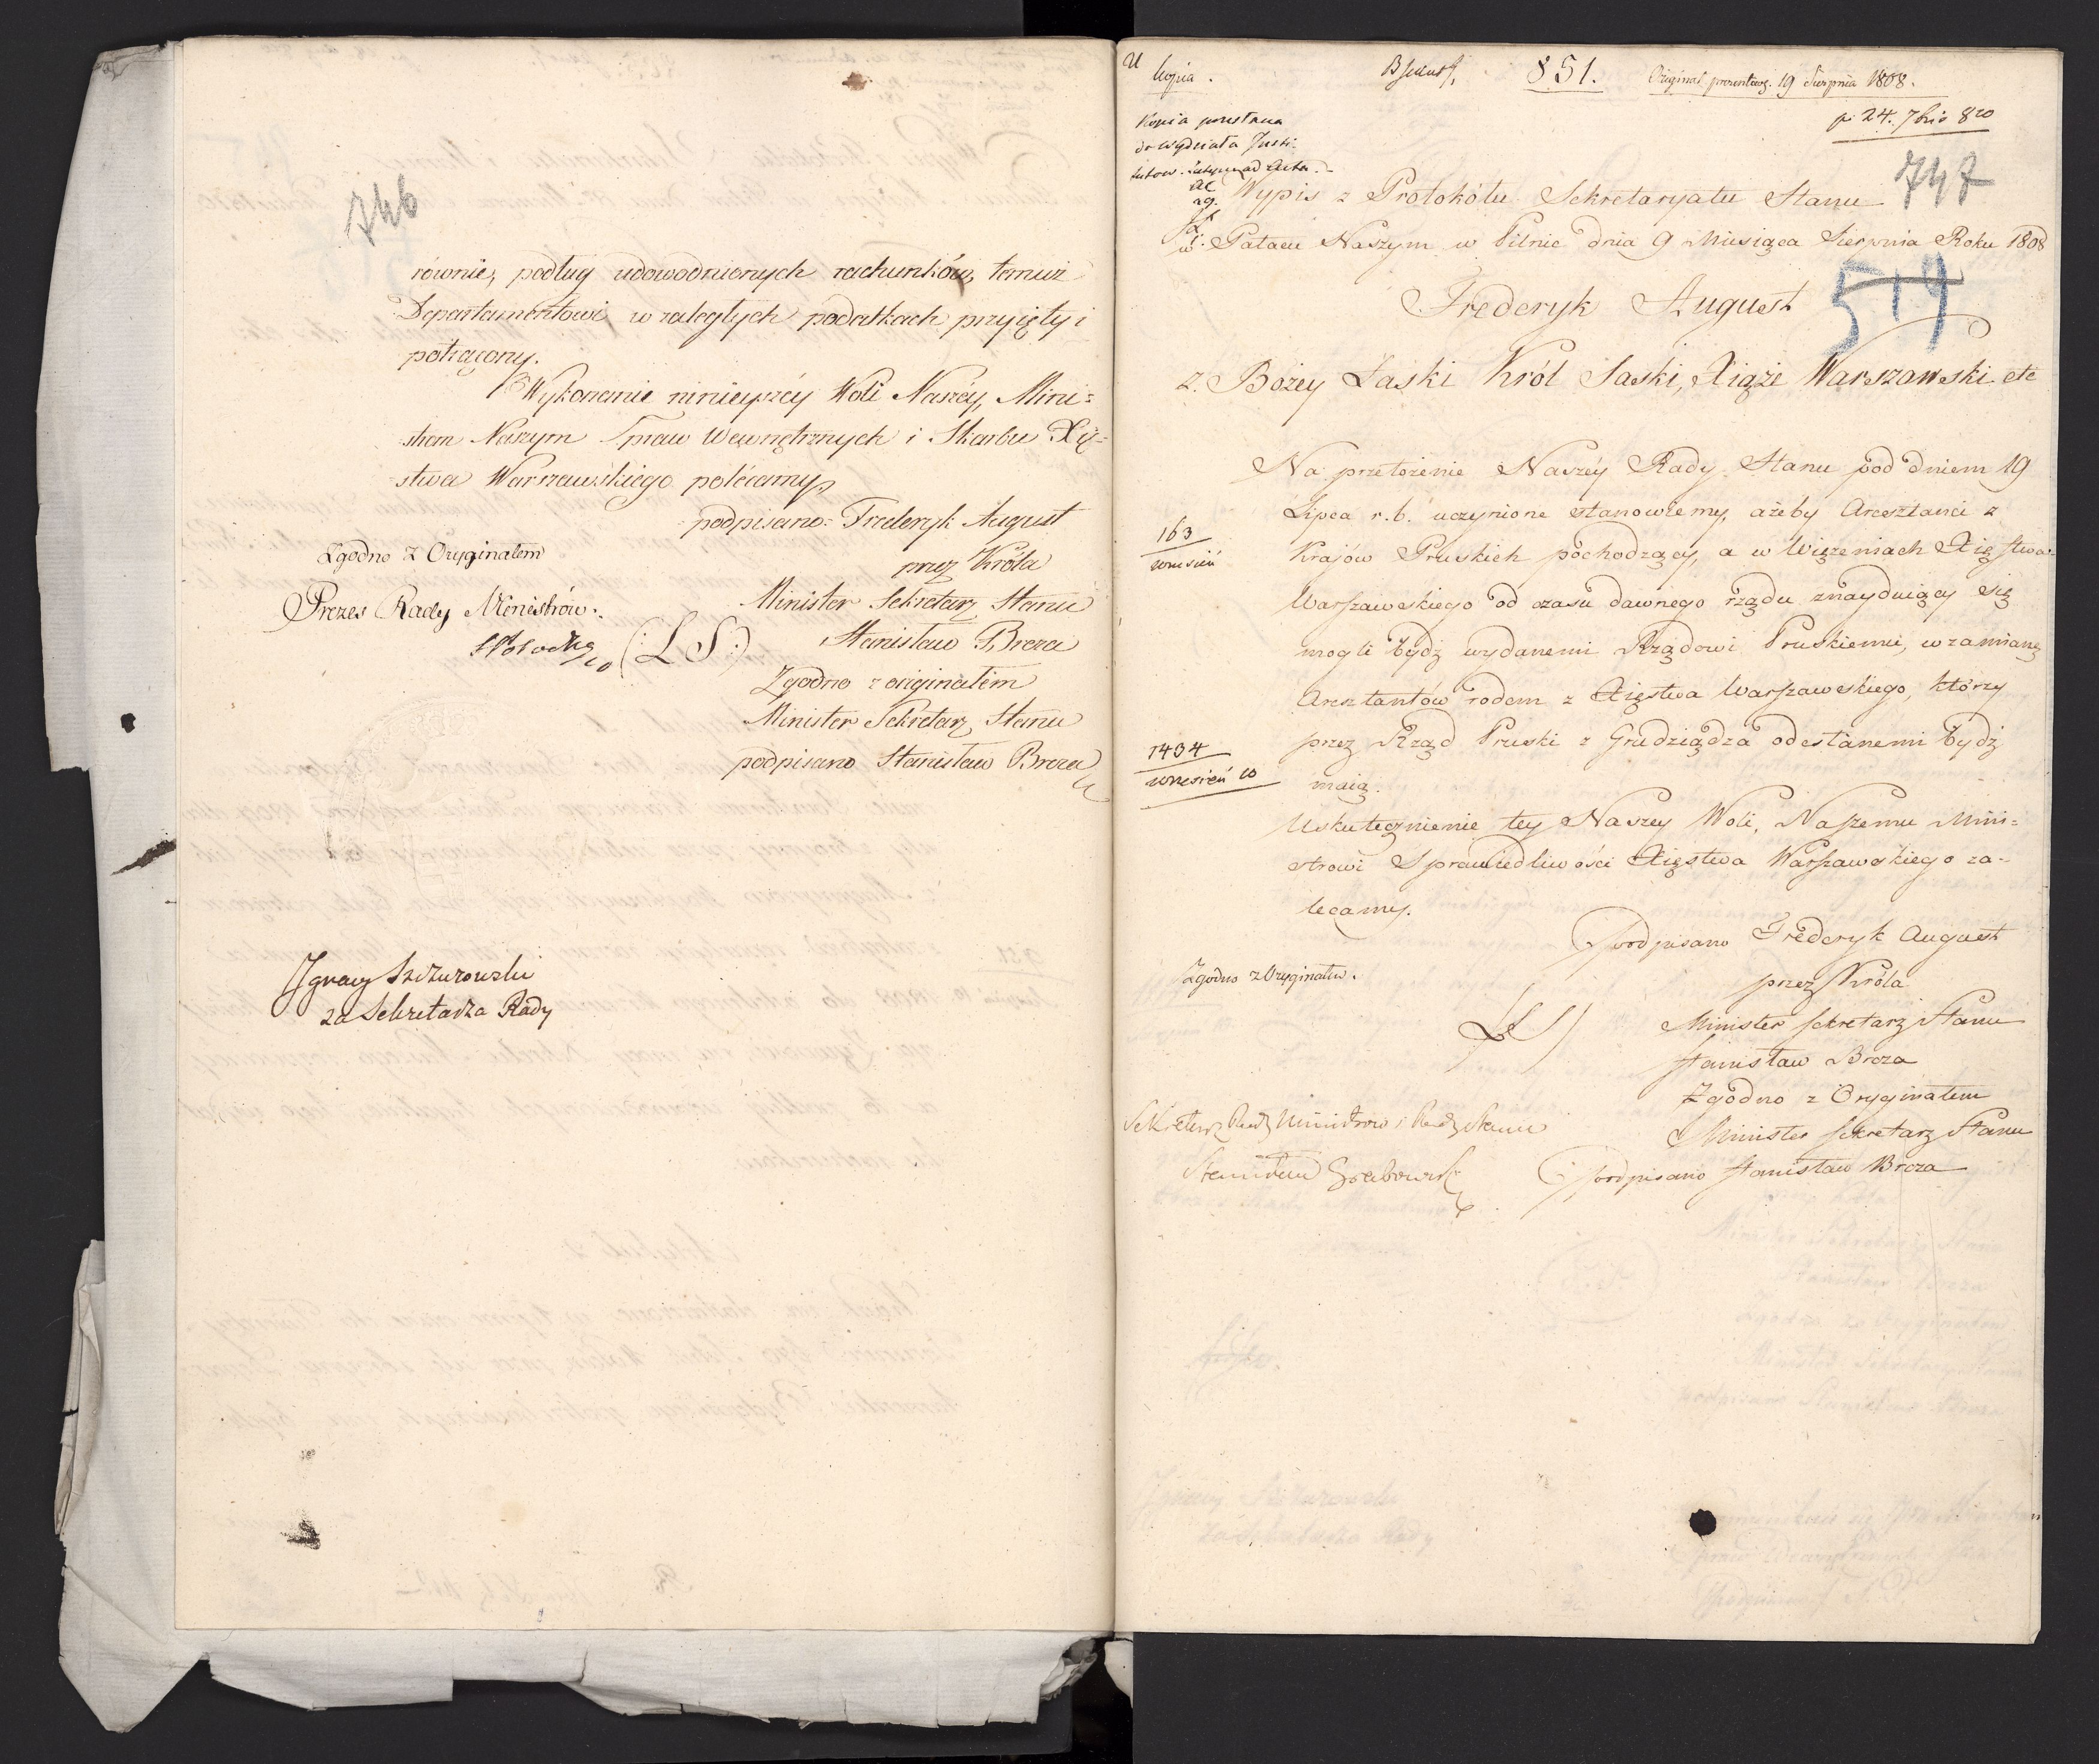 746
równie, podług udowodnionych rachunków, temuż
Departamentowi w zaległych podatkach przyięty i
potrącony.
Wykonanie ninieyszéy Woli Naszéy, Mini=
strom Naszym Spraw Wewnętrznych i Skarbu Xię=
stwa Warszawskiego polécamy,
podpisano: Frederyk August
przez Króla
Minister Sekretarz Stanu
Stanisław Breza
Zgodno z originałem
Minister Sekretarz Stanu
podpisano Stanisław Breza
Zgodno z Oryginałem
Prezes Rady Ministrów:
(: L S :)
Ignacy Szczurowski
za Sekretarza Rady
Kopia.
851.
Original prezentow. 19 Sierpnia 1808.
p. 24. 7bris 810
Kopia przesłana
do wydziału Justi.
747
Wypis z Protokółu Sekretaryatu Stanu
w Pałacu Naszym w Pilnic dnia 9 Miesiąca Sierpnia Roku 1808
519
Frederyk August
z Bożey Łaski Król Saski, Xiąże Warszawski etc
Na przełożenie Naszéy Rady Stanu pod dniem 19
Lipca r. b. uczynione stanowiemy, ażeby Aresztanci z
163
wrzesień
Kraiów Pruskich pochodzący, a w Więzeniach Xięstwa
Warszawskiego od czasu dawnego rządu znayduiący się
mogli bydź wydanemi Rządowi Pruskiemu, w zamianę
Aresztantów rodem z Xięstwa Warszawskiego, którzy
1434
wrzesień 10
przez Rząd Pruski z Grudziądza odesłanemi bydź
maią.
Uskutecznienie tey Naszey Woli, Naszemu Mini=
strowi Sprawiedliwości Xięstwa Warszawskiego za=
lecamy.
Podpisano Frederyk August
przez Króla
Minister Sekretarz Stanu
Stanisław Breza
Zgodno z Oryginałem
Minister Sekretarz Stanu
Podpisano Stanisław Breza
Zgodno z Oryginałem.
L S
Sekretarz Rady Ministrow i Rady Stanu
Stanisław Grabowski